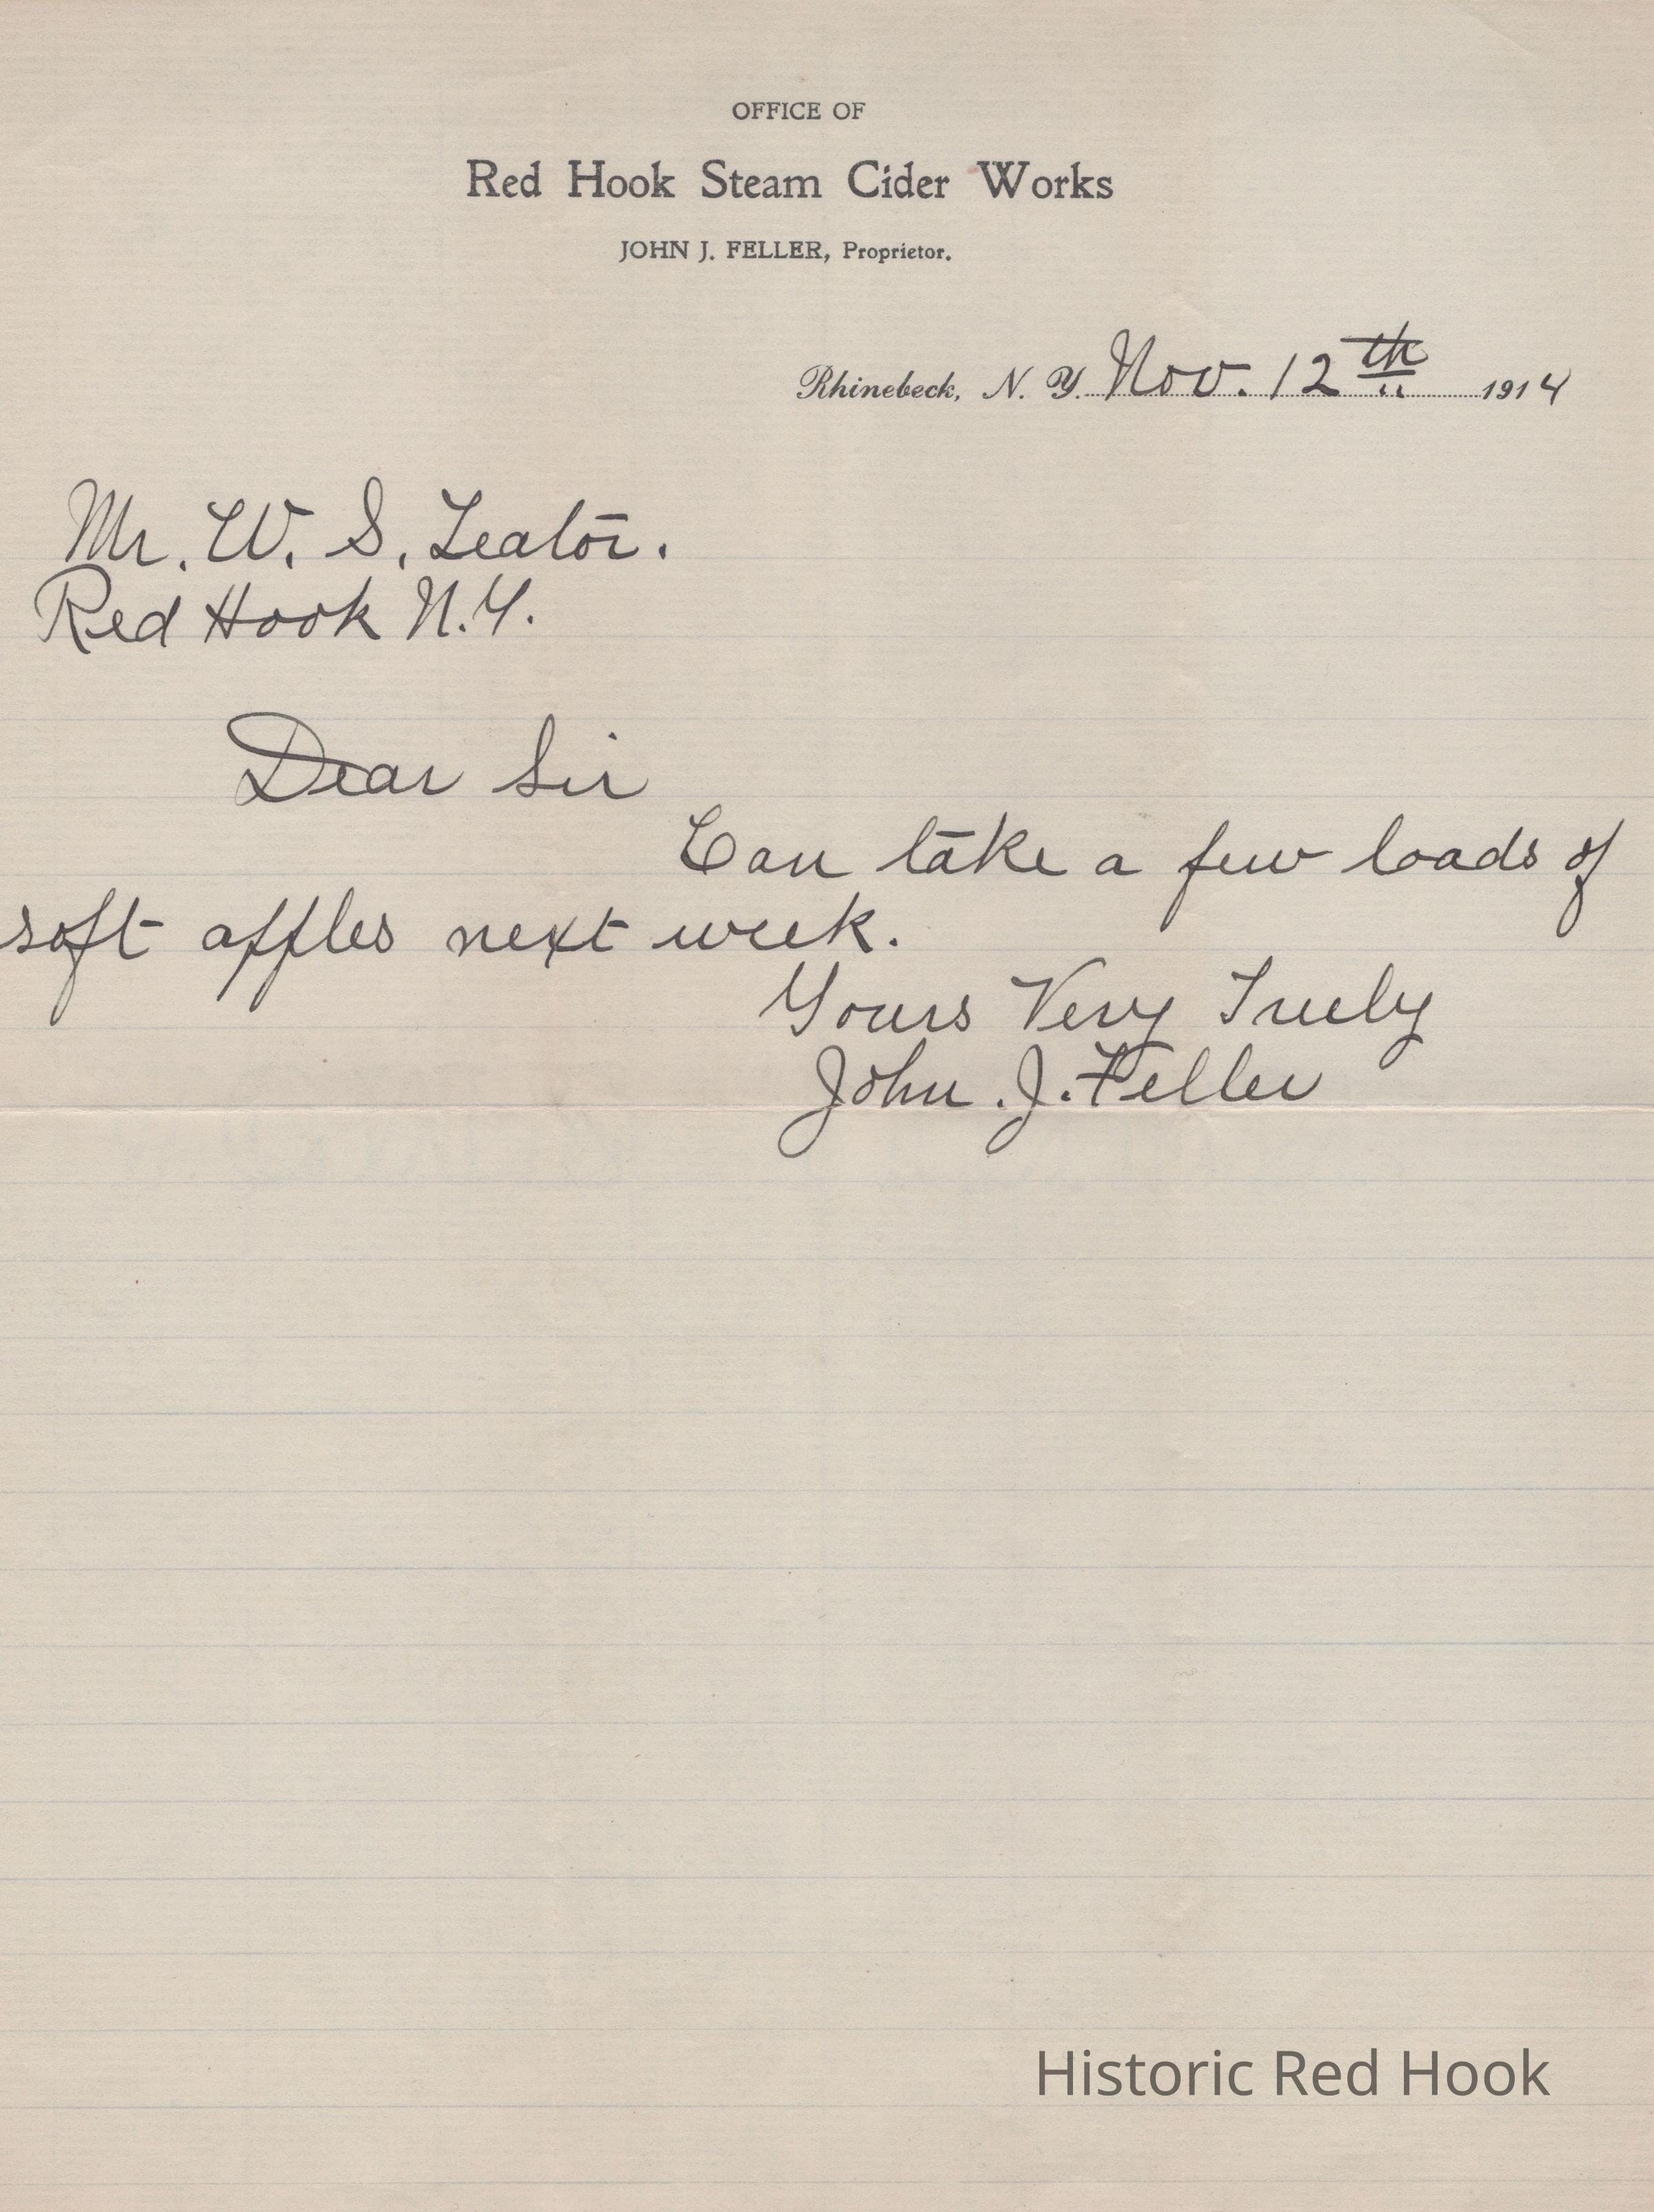 OFFICE OF
Red Hook Steam Cider Works
JOHN J. FELLER, Proprietor.
Rhinebeck, N. Y. Nov. 12th 1914
Mr. W. S. Teator.
Red Hook N.Y.
Dear Sir
Can take a few loads of
soft apples next week.
Yours Very Truely
John. J. Feller
Historic Red Hook